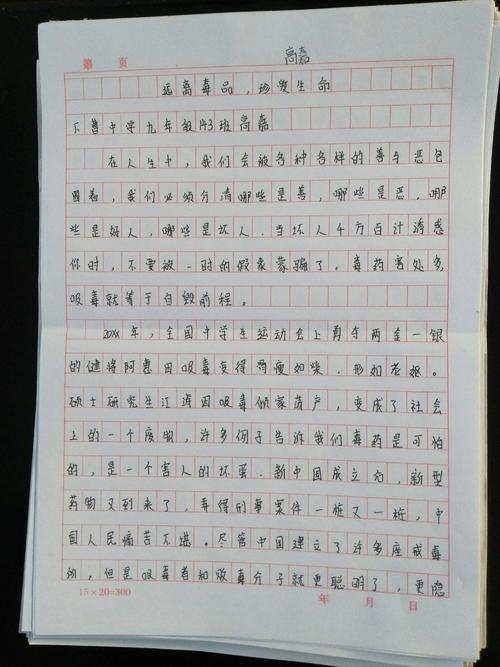 高嘉
第 页
远离毒品，珍爱生命
下营中学九年级143班高嘉
在人生中，我们会被各种各样的善与恶包
围着，我们必须分清哪些是善，哪些是恶，哪
些是好人，哪些是坏人．当坏人千方百计诱惑
你时，不要被一时的假象蒙骗了。毒药害处多，
吸毒就等于自毁前程。
20xx年，全国中学生运动会上勇夺两金一银
的健将阿惠因吸毒变得骨瘦如柴，形如老妪。
硕士研究生江涛因吸毒倾家荡产，变成了社会
上的一个废物，许多例子告诉我们毒药是可怕
的，是一个害人的坏蛋．新中国成立后，新型
药物又到来了，弄得刑事案件一桩又一桩，中
国人民痛苦不堪。尽管中国建立了许多座戒毒
所，但是吸毒者和贩毒分子就更聪明了，更隐
15×20=300
年 月 日